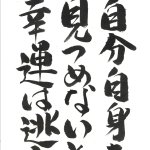 自分自身を
見つめないと
幸運は逃